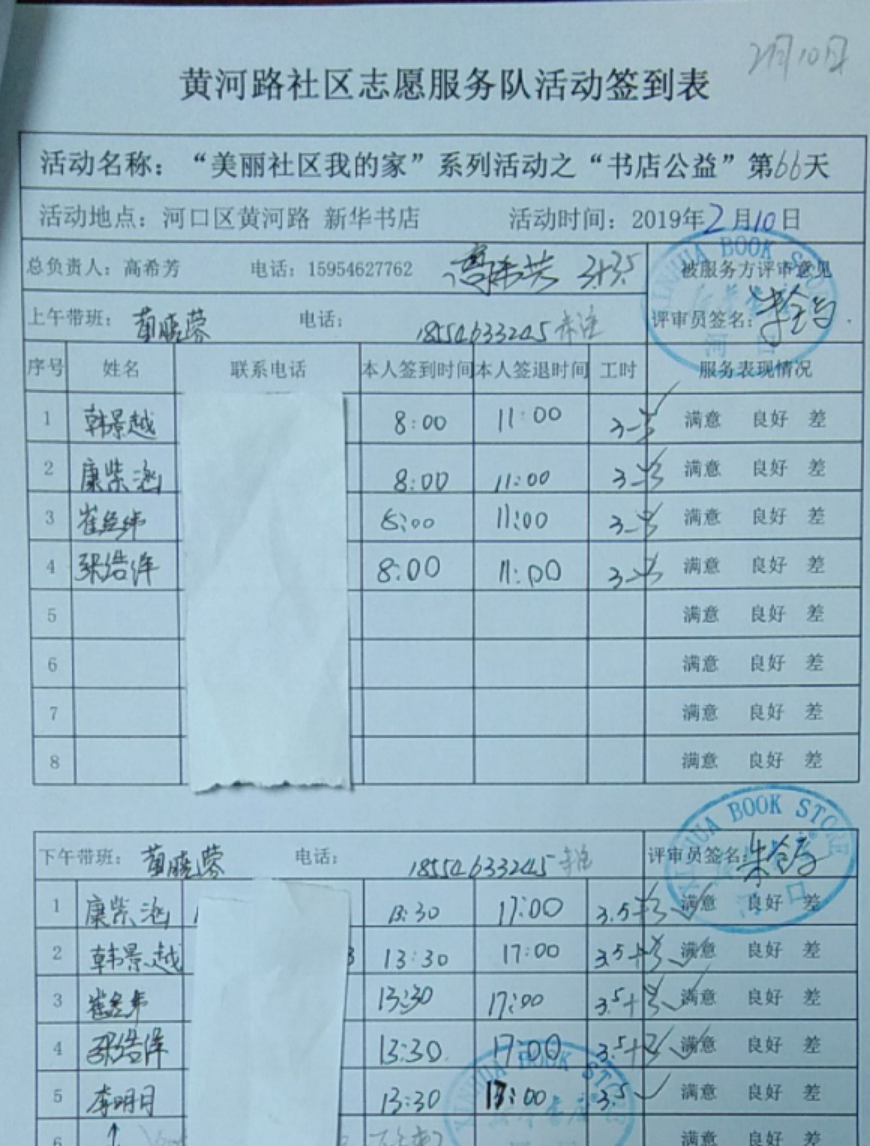 2月10日
黄河路社区志愿服务队活动签到表
活动名称：“美丽社区我的家”系列活动之“书店公益”第66天
活动地点：河口区黄河路 新华书店 活动时间：2019年2月10日
总负责人：高希芳 电话：15954627762 高希芳 3+3.5 被服务方评审意见
上午带班： 电话：18554633245 评审员签名：
序号 姓名 联系电话 本人签到时间 本人签退时间 工时 服务表现情况
1 韩景越 8:00 11:00 3 满意 良好 差
2 康紫涵 8:00 11:00 3 满意 良好 差
3 崔经纬 8:00 11:00 3 满意 良好 差
4 张浩洋 8:00 11:00 3 满意 良好 差
5 满意 良好 差
6 满意 良好 差
7 满意 良好 差
8 满意 良好 差
XINHUA BOOK STORE
河口
下午带班： 电话：18554633245 评审员签名：
XINHUA BOOK STORE
河口
1 康紫涵 13:30 17:00 3.5 满意 良好 差
2 韩景越 13:30 17:00 3.5 满意 良好 差
3 崔经纬 13:30 17:00 3.5 满意 良好 差
4 张浩洋 13:30 17:00 3.5 满意 良好 差
5 李明月 13:30 17:00 3.5 满意 良好 差
6 满意 良好 差
XINHUA BOOK STORE